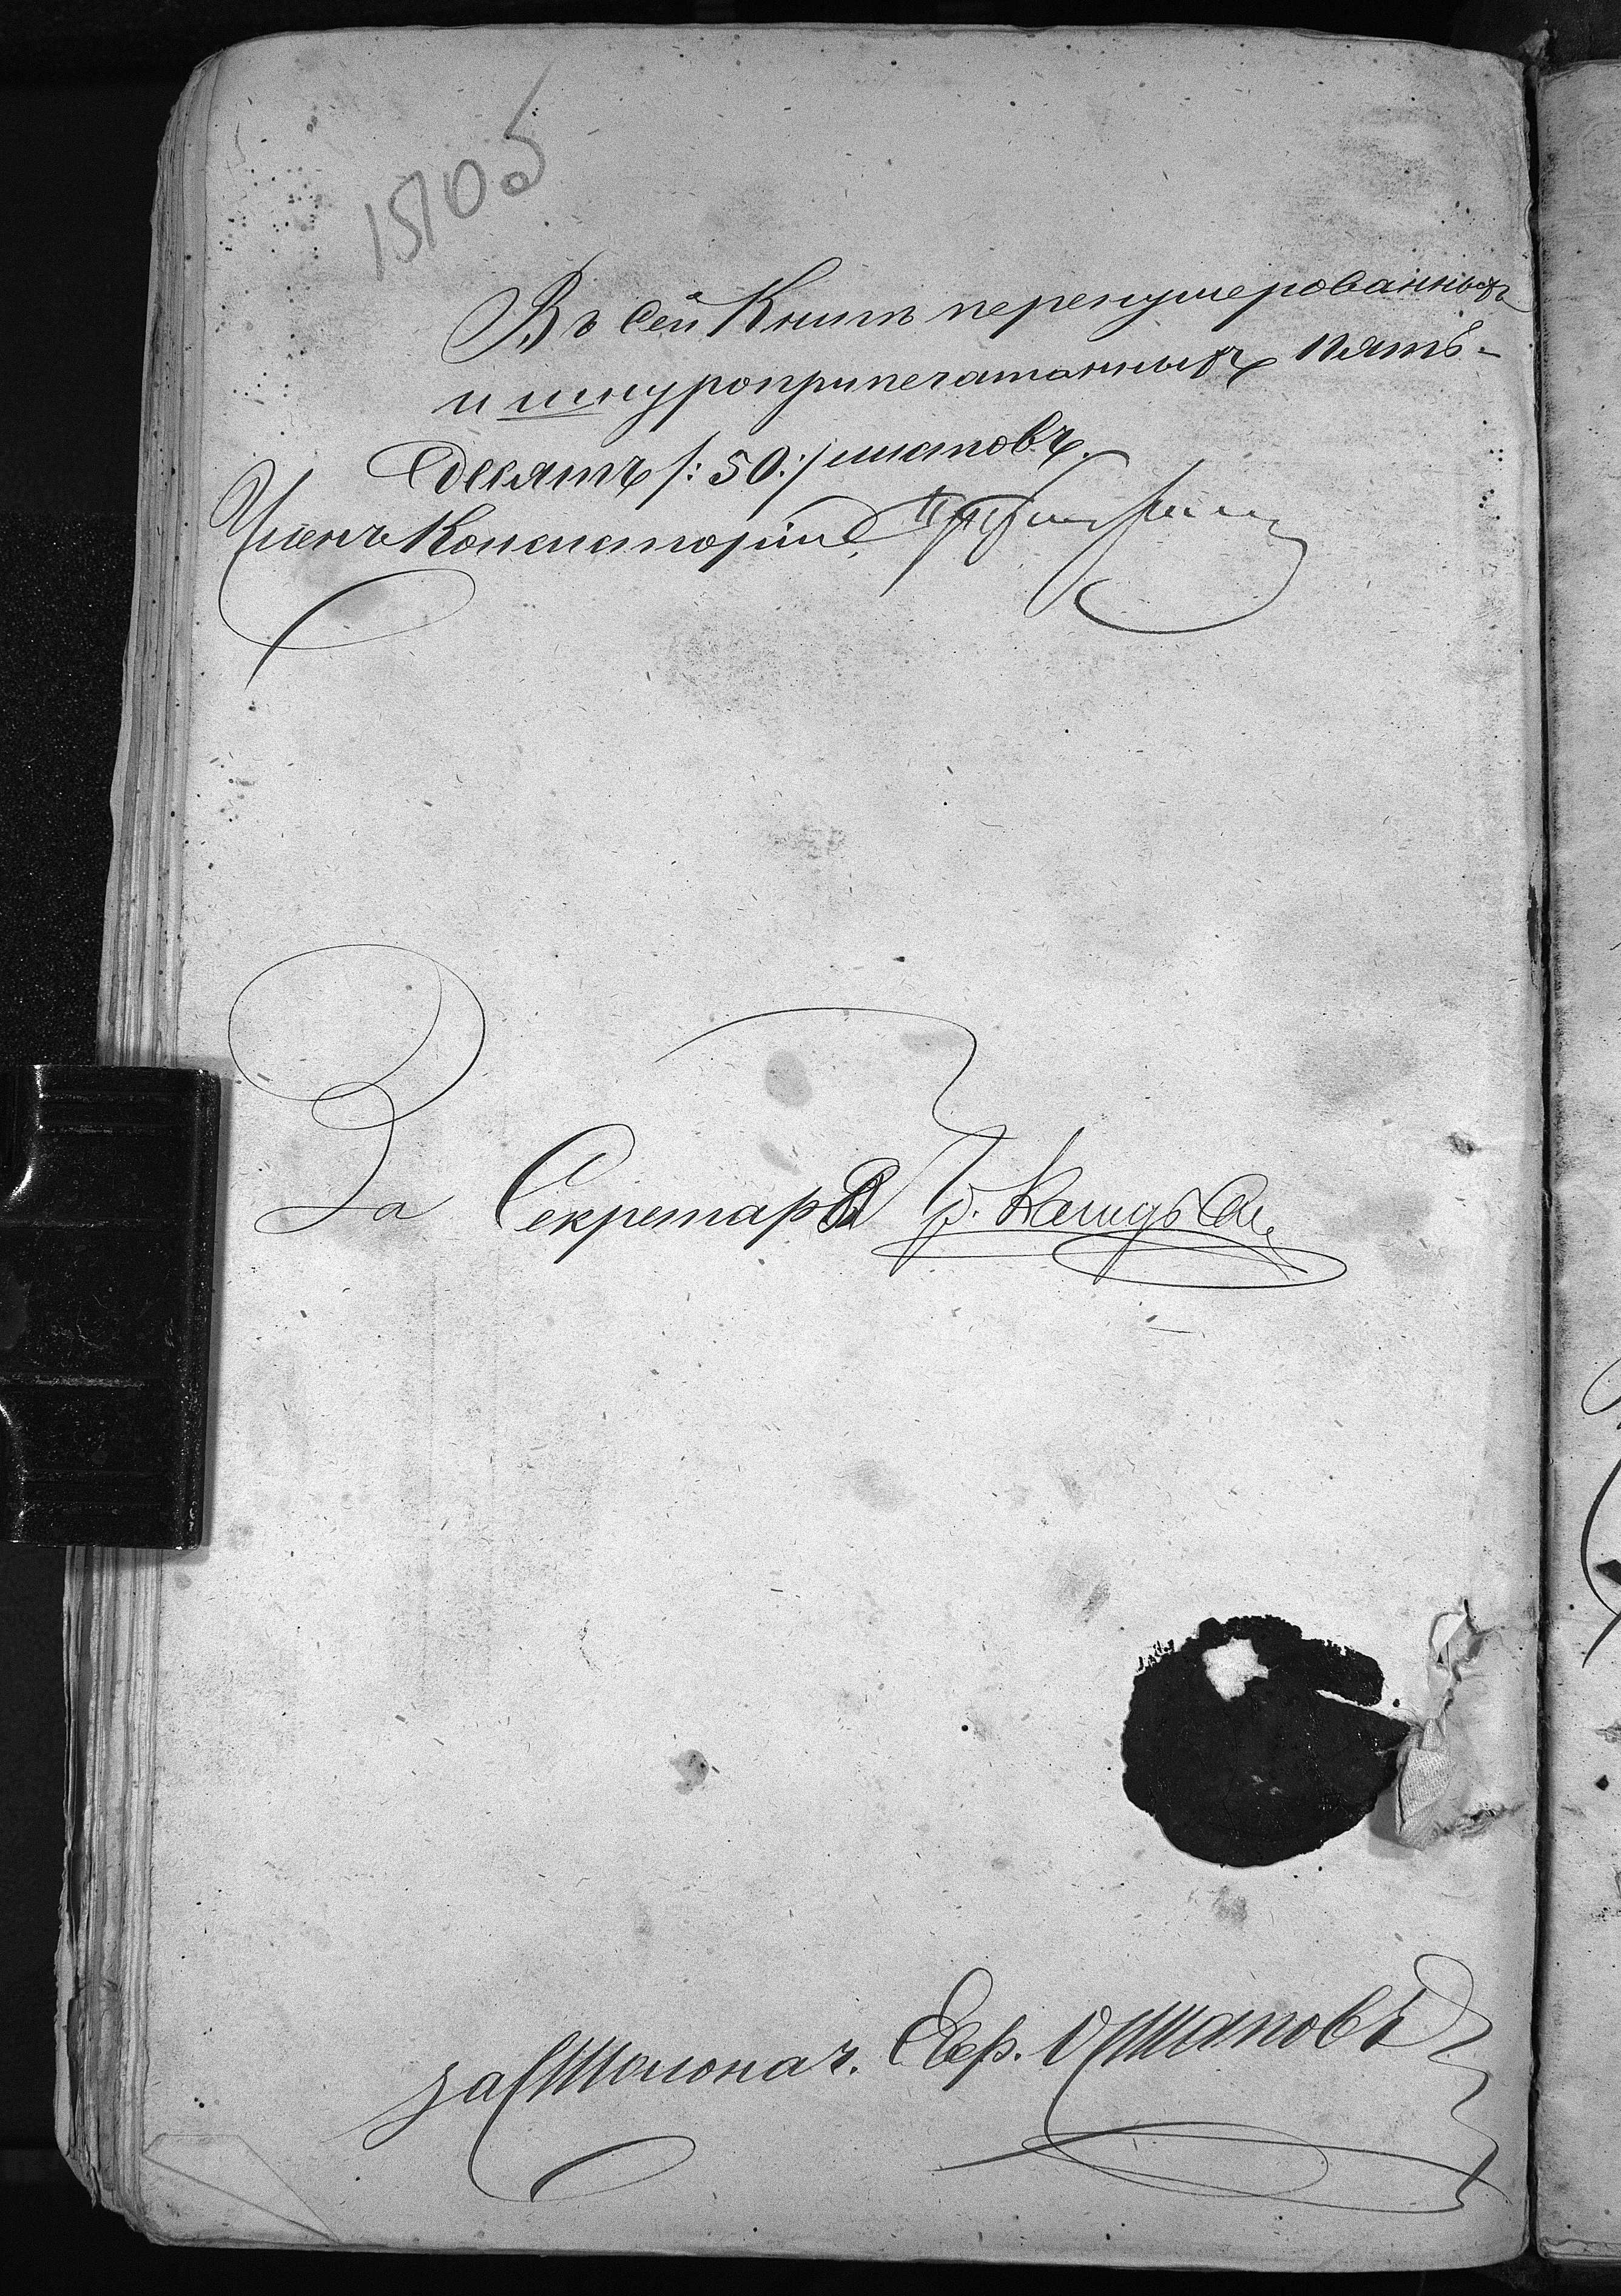 Въ сей Книгѣ перенумерованныхъ
и шнуроприпечатанныхъ пять-
десятъ /:50:/ листовъ.
Членъ Консисторіи
За Секретаря
за Столонач. Евф. Остаповъ